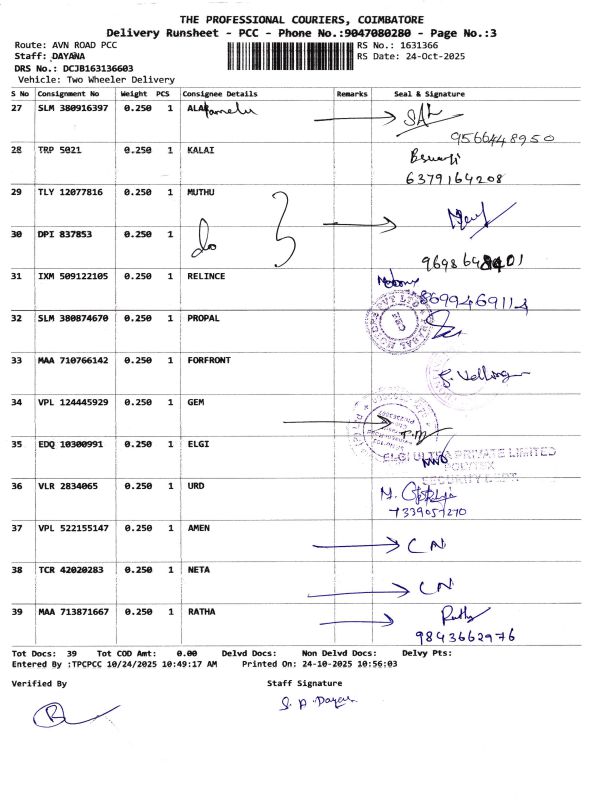 THE PROFESSIONAL COURIERS, COIMBATORE
Delivery Runsheet - PCC - Phone No.:9047080280 - Page No.:3
Route: AVN ROAD PCC
RS No.: 1631366
Staff: DAYANA
RS Date: 24-Oct-2025
DRS No.: DCJB163136603
Vehicle: Two Wheeler Delivery
S No Consignment No Weight PCS Consignee Details Remarks Seal & Signature
27 SLM 380916397 0.250 1
9566448950
28 TRP 5021 0.250 1 KALAI
6379164208
29 TLY 12077816 0.250 1 MUTHU
30 DPI 837853 0.250 1 do
31 IXM 509122105 0.250 1 RELINCE
8699469114
32 SLM 380874670 0.250 1 PROPAL
33 MAA 710766142 0.250 1 FORFRONT
34 VPL 124445929 0.250 1 GEM
35 EDQ 10300991 0.250 1 ELGI
ELGI ULTRA PRIVATE LIMITED
SECURITY DEPT.
36 VLR 2834065 0.250 1 URD
7339057270
37 VPL 522155147 0.250 1 AMEN
CN
38 TCR 42020283 0.250 1 NETA
CN
39 MAA 713871667 0.250 1 RATHA
9843662976
Tot Docs: 39 Tot COD Amt: 0.00 Delvd Docs: Non Delvd Docs: Delvy Pts:
Entered By :TPCPCC 10/24/2025 10:49:17 AM Printed On: 24-10-2025 10:56:03
Verified By Staff Signature